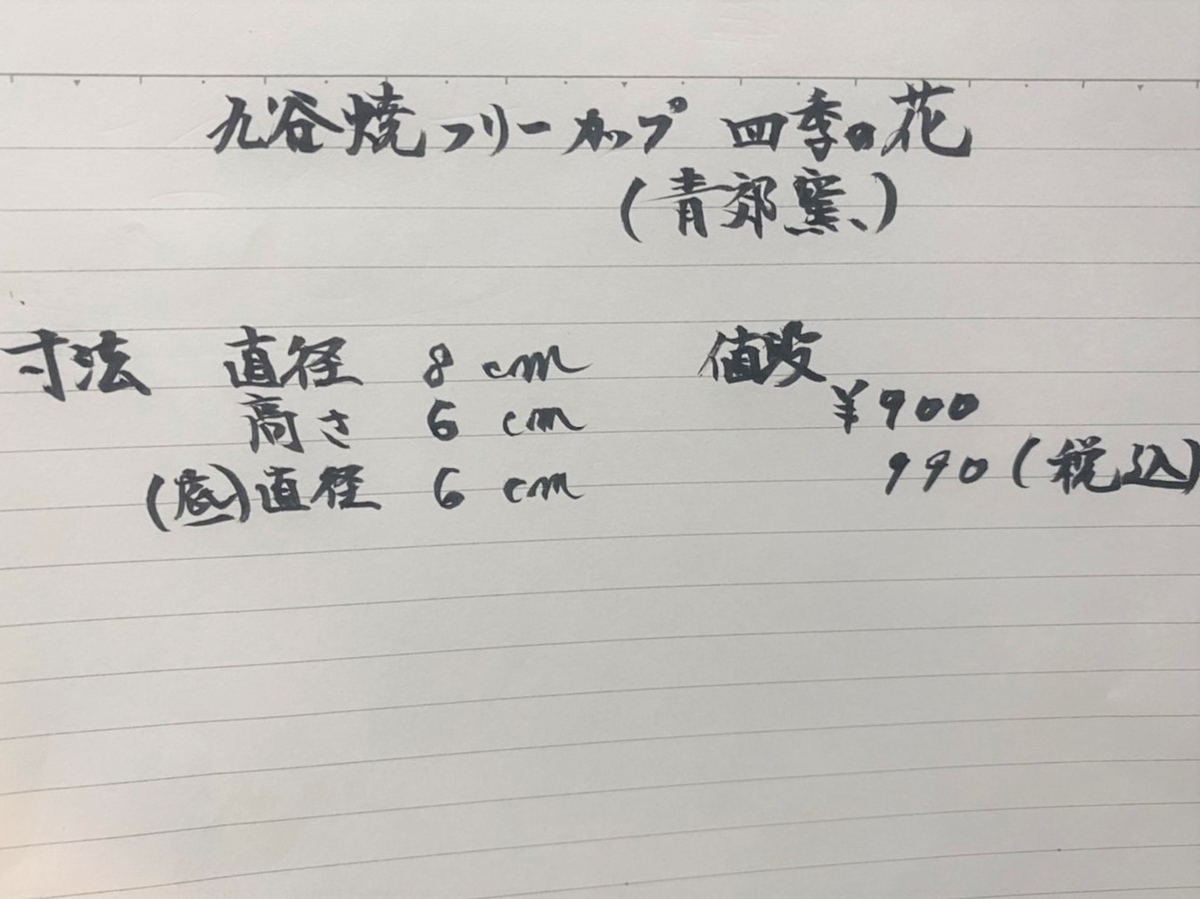 九谷焼フリーカップ 四季の花
(青郊窯、)
寸法 直径 8 cm 値段
高さ 6 cm ¥900
(底)直径 6 cm 990(税込)